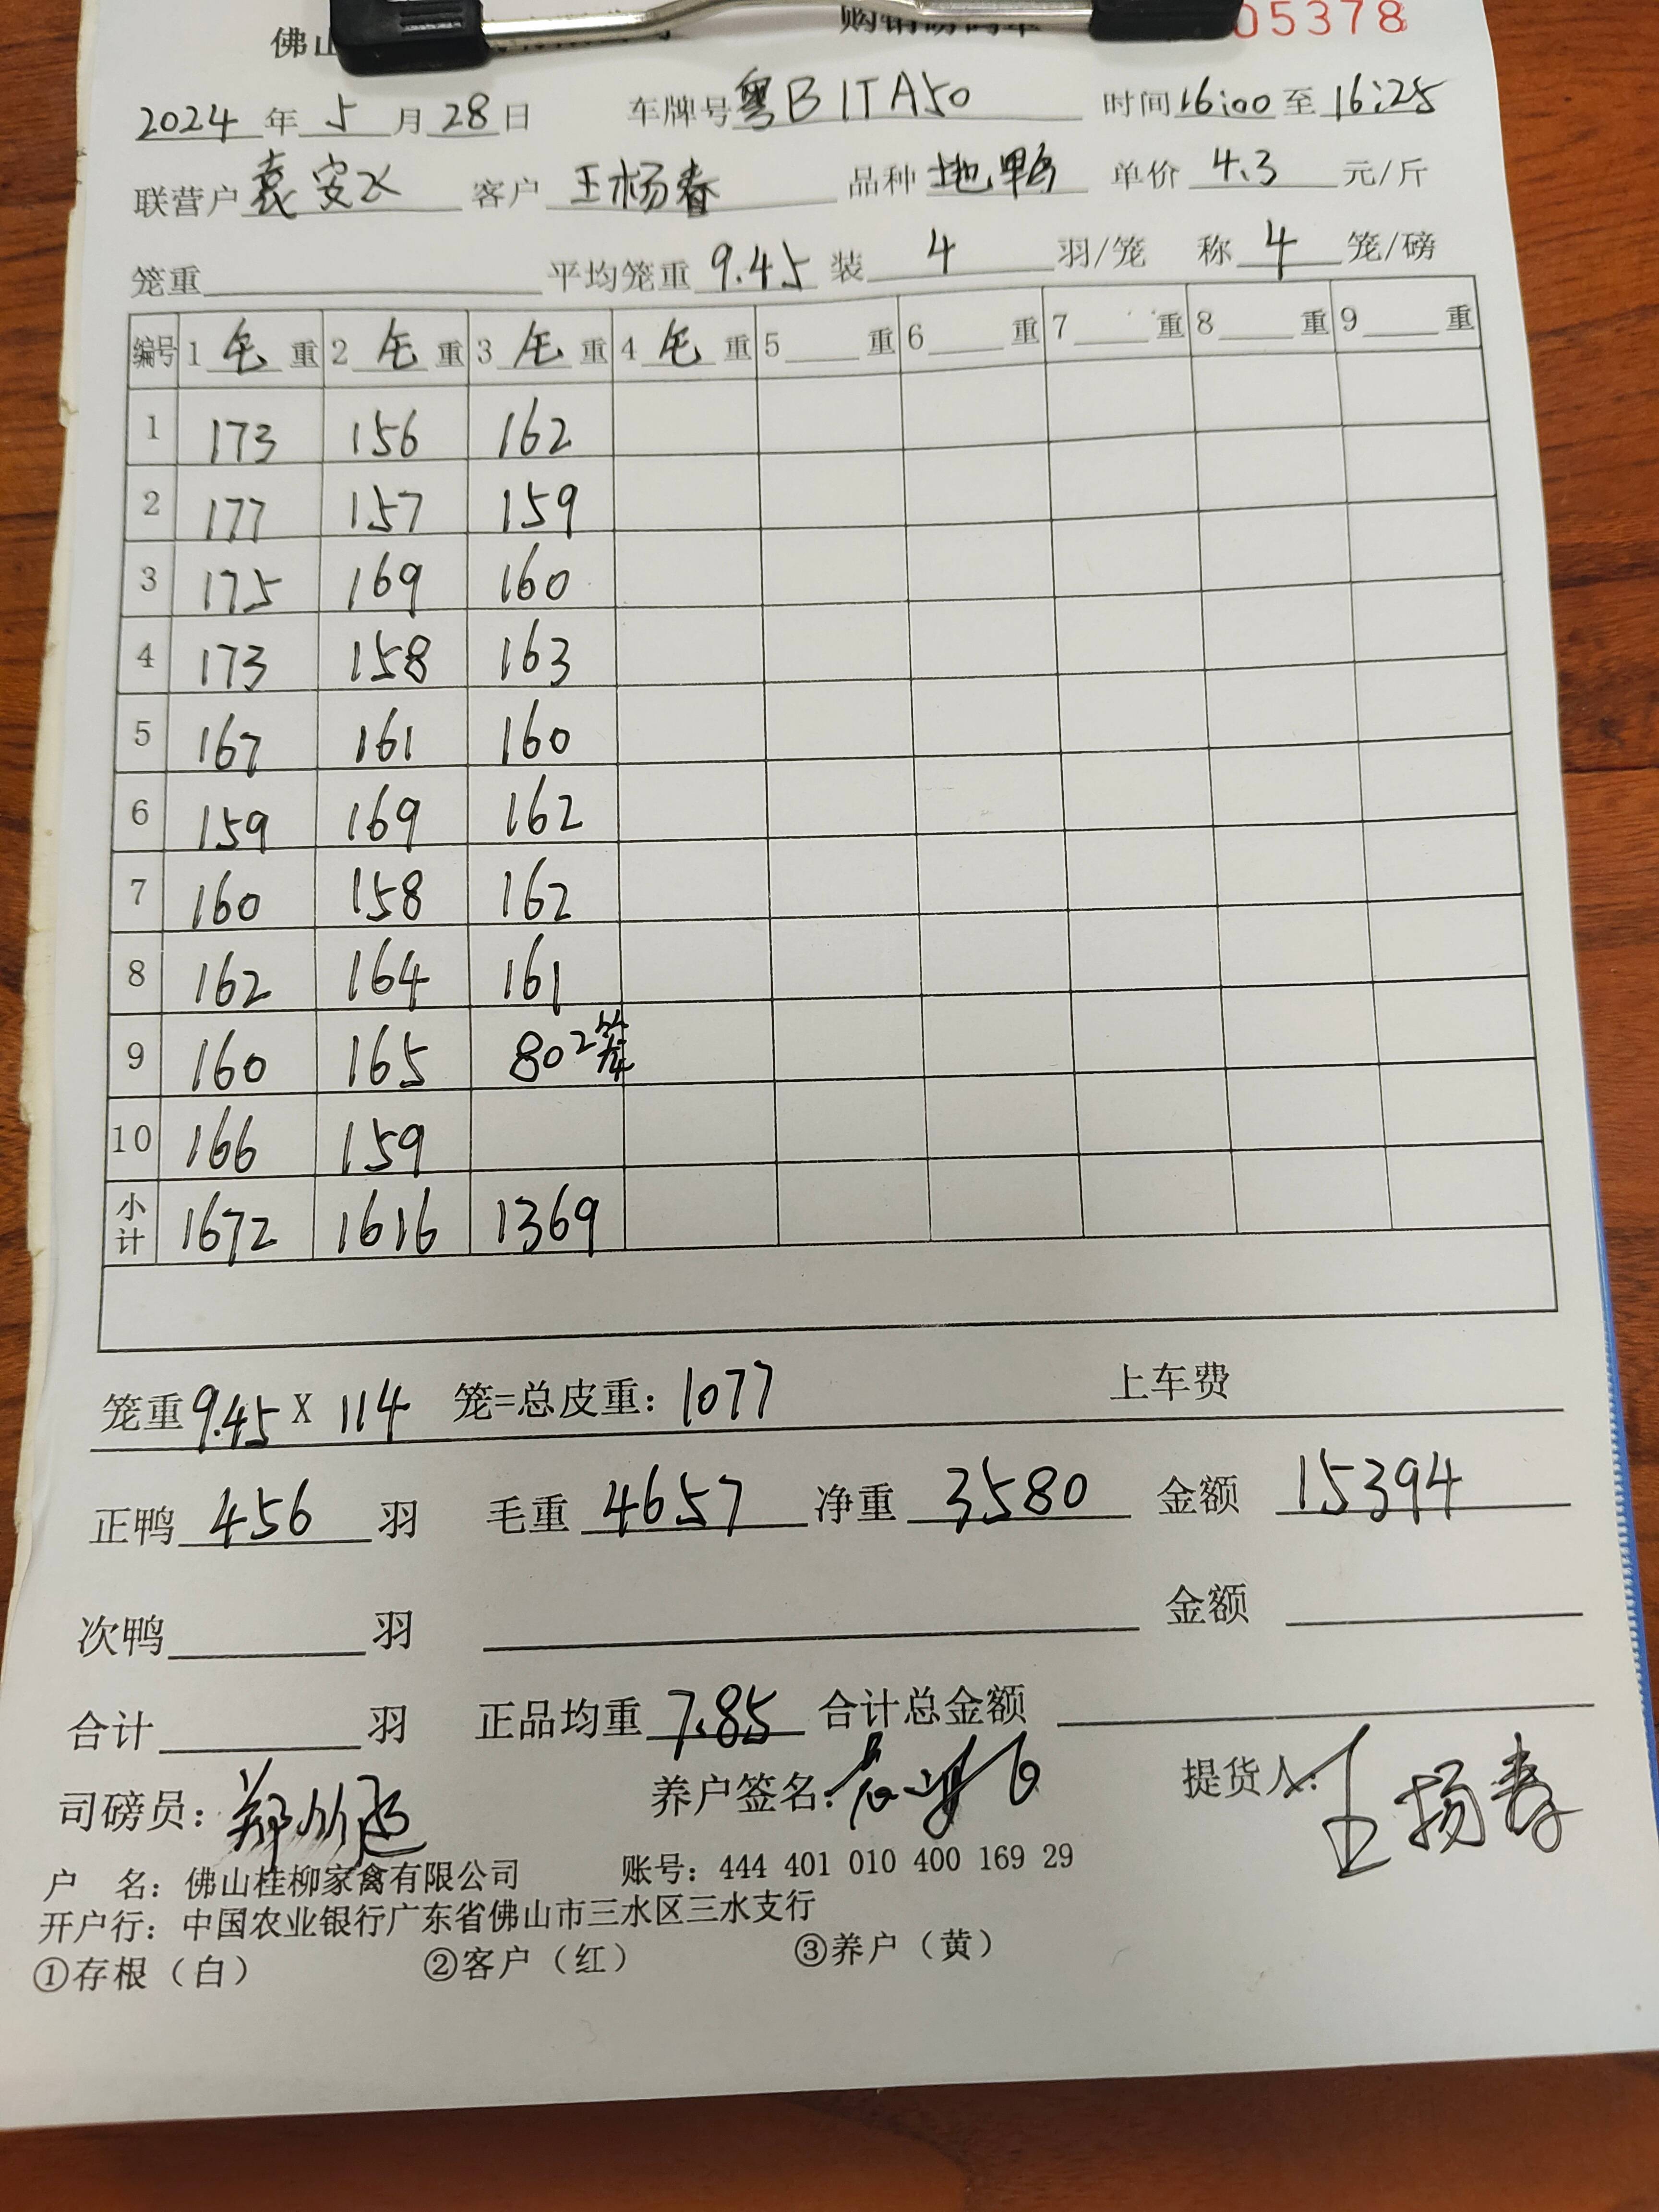 佛山
05378
2024年5月28日 车牌号粤B1TA50 时间16:00至16:25
联营户袁安 客户王杨春 品种地鸭 单价4.3元/斤
笼重 平均笼重9.45装4羽/笼 称4笼/磅
编号 1毛重 2毛重 3毛重 4毛重 5重 6重 7重 8重 9重
1 173 156 162
2 177 157 159
3 175 169 160
4 173 158 163
5 167 161 160
6 159 169 162
7 160 158 162
8 162 164 161
9 160 165 802笼
10 166 159
小计 1672 1616 1369
笼重9.45X114笼=总皮重：1077 上车费
正鸭456羽 毛重4657净重3580 金额15394
次鸭羽 金额
合计羽 正品均重7.85合计总金额
司磅员： 养户签名： 提货人：王扬春
户 名：佛山桂柳家禽有限公司 账号：444 401 010 400 169 29
开户行：中国农业银行广东省佛山市三水区三水支行
①存根（白） ②客户（红） ③养户（黄）